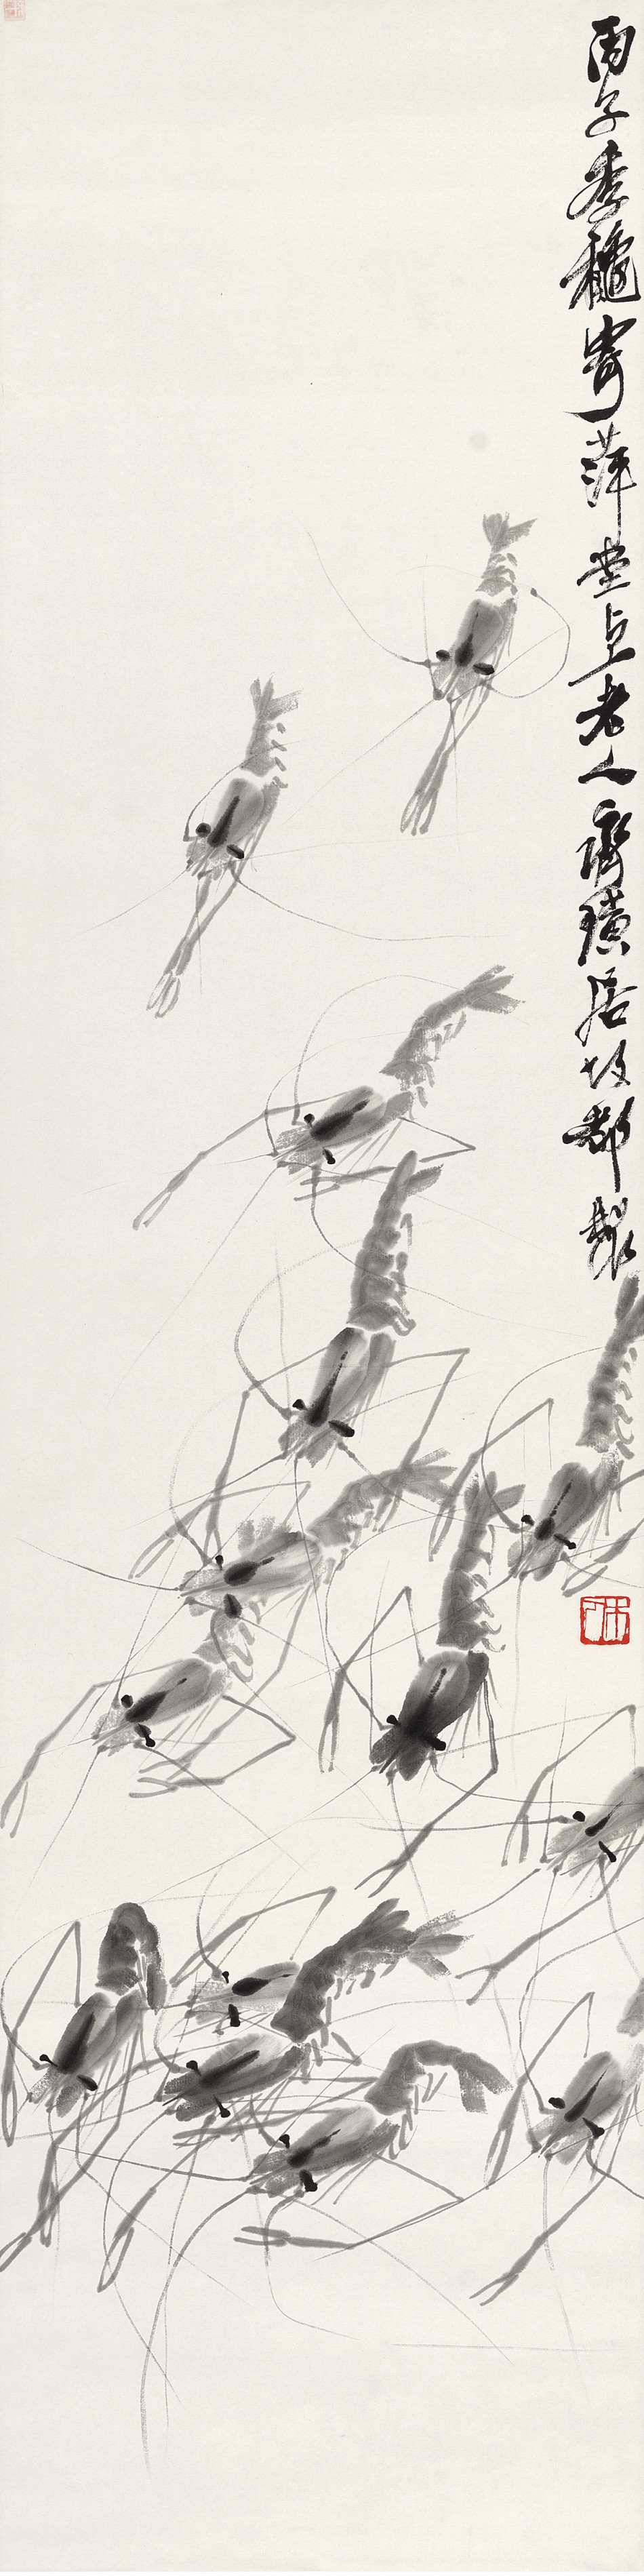 丙子季龝寄萍堂上老人齊璜居故都製